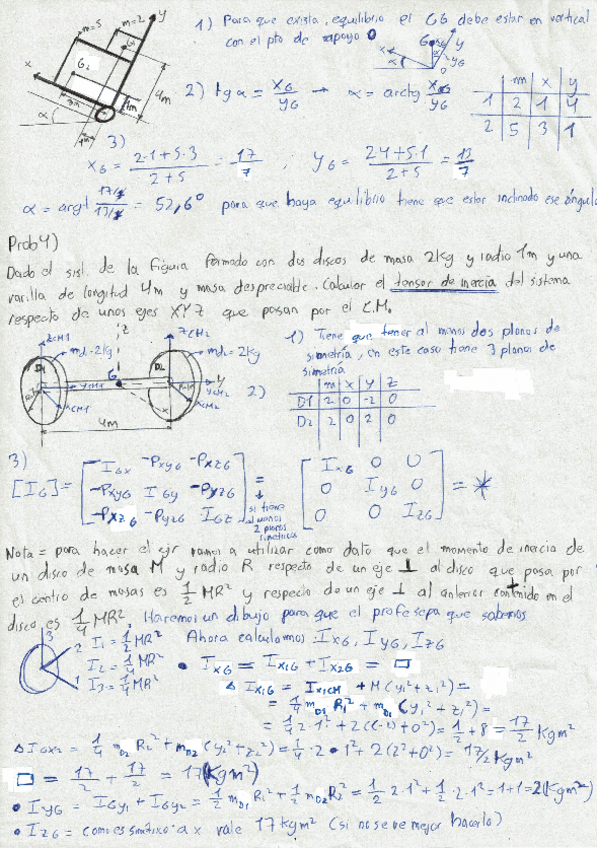 m=5 m=2 y
G1
G2
x
4m
1m
α
1m
1) Para que exista equilibrio el CG debe estar en vertical
con el pto de apoyo O
2) tg α = xG/yG → α = arctg xG/yG
m x y
1 2 1 4
2 5 3 1
3)
xG = (2·1+5·3)/(2+5) = 17/7 ; yG = (2·4+5·1)/(2+5) = 13/7
α = arctg (17/7)/(13/7) = 52,6° para que haya equilibrio tiene que estar inclinado ese ángulo
Prob4)
Dado el sist. de la figura formado con dos discos de masa 2kg y radio 1m y una
varilla de longitud 4m y masa despreciable. Calcular el tensor de inercia del sistema
respecto de unos ejes XYZ que pasan por el C.M.
ZCM1 Z ZCM2
D1 md=2kg D2 md2=2kg
YCM1 G YCM2 Y
XCM1 X XCM2
4m
1) Tiene que tener al menos dos planos de
simetría, en este caso tiene 3 planos de
simetría
2)
m x y z
D1 2 0 -2 0
D2 2 0 2 0
3)
[IG] = [IGx -PxyG -PxzG
-PxyG IGy -PyzG
-PxzG -PyzG IGz] = si tiene al menos 2 planos simetricos [IxG 0 0
0 IyG 0
0 0 IzG] = *
Nota = para hacer el ejr vamos a utilizar como dato que el momento de inercia de
un disco de masa M y radio R respecto de un eje ⊥ al disco que pasa por
el centro de masas es 1/2 MR² y respecto de un eje ⊥ al anterior contenido en el
disco es 1/4 MR². Haremos un dibujo para que el profe sepa que sabemos
3
2 I1 = 1/2 MR²
I2 = 1/4 MR²
1 I3 = 1/4 MR²
Ahora calculamos IxG, IyG, IzG
• IxG = Ix1G + Ix2G = □
△ Ix1G = Ix1CM + M(y1²+z1²) =
= 1/4 mD1 R1² + mD1 (y1²+z1²) =
= 1/4 2·1² + 2((-2)+0²) = 1/2 + 8 = 17/2 Kgm²
△ IGx2 = 1/4 mD2 R2² + mD2 (y2²+z2²) = 1/4·2·1² + 2(2²+0²) = 17/2 Kgm²
□ = 17/2 + 17/2 = 17(Kgm²)
• IyG = IGy1 + IGy2 = 1/2 mD1 R1² + 1/2 mD2 R2² = 1/2 2·1² + 1/2·2·1² = 1+1 = 2(Kgm²)
• IzG = como es simétrico a x vale 17kgm² (si no se ve mejor hacerlo)